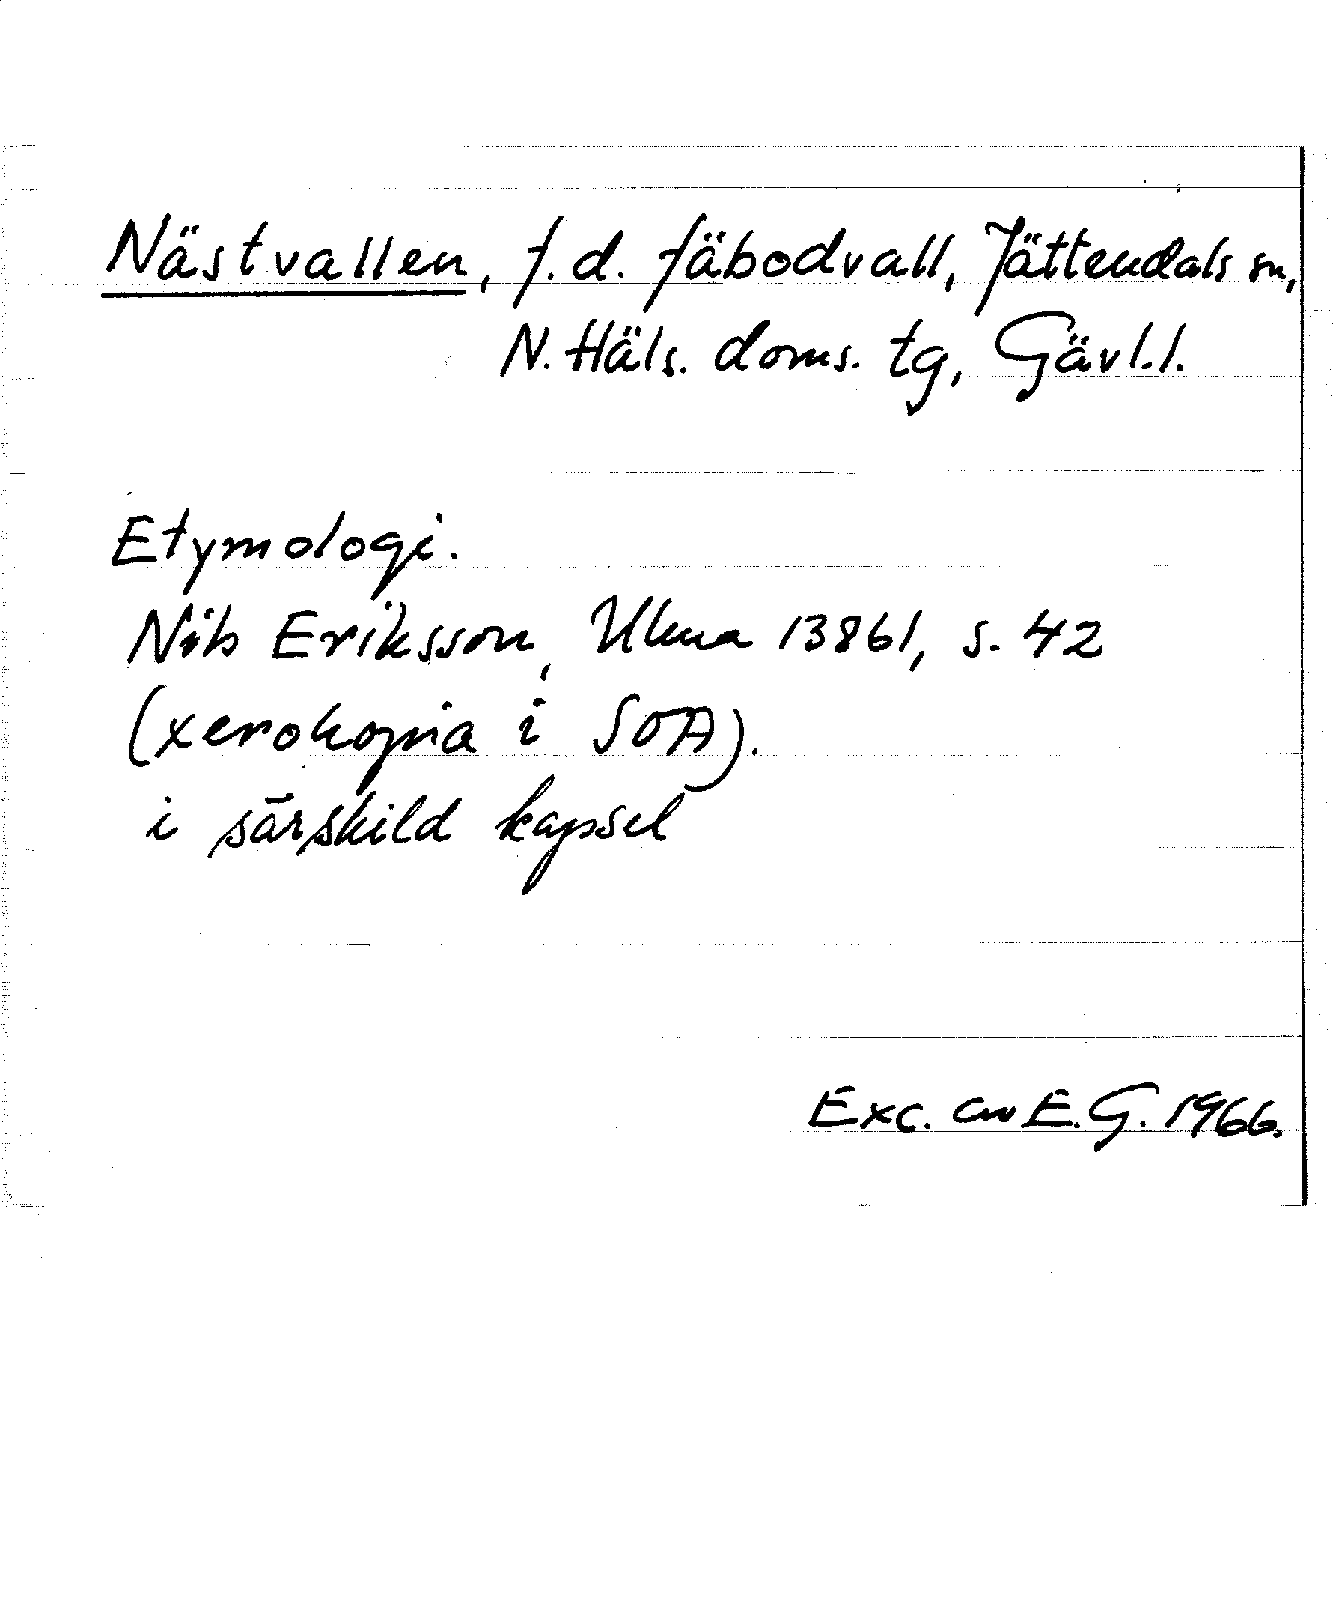 Nästvallen, f.d. fäbodvall, Jättendals sn,
N. Häls. doms. tg, Gävl.l.
Etymologi.
Nils Eriksson, Ulma 13861, s. 42
(xerokopia i SOA).
i särskild kapsel
Exc. av E.G. 1966.